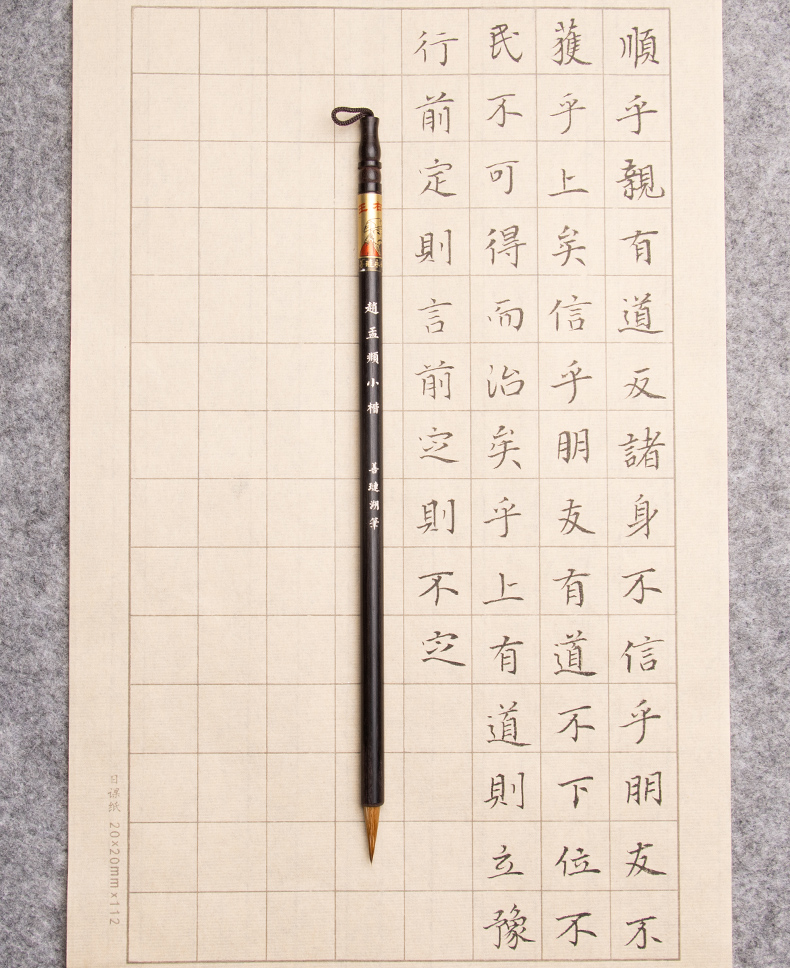 順乎親有道反諸身不信乎朋友不
獲乎上矣信乎朋友有道不下位不
民不可得而治矣乎上有道則立豫
行前定則言前定則不定
趙孟頫小楷 善璉湖筆
日课纸 20×20mm×112